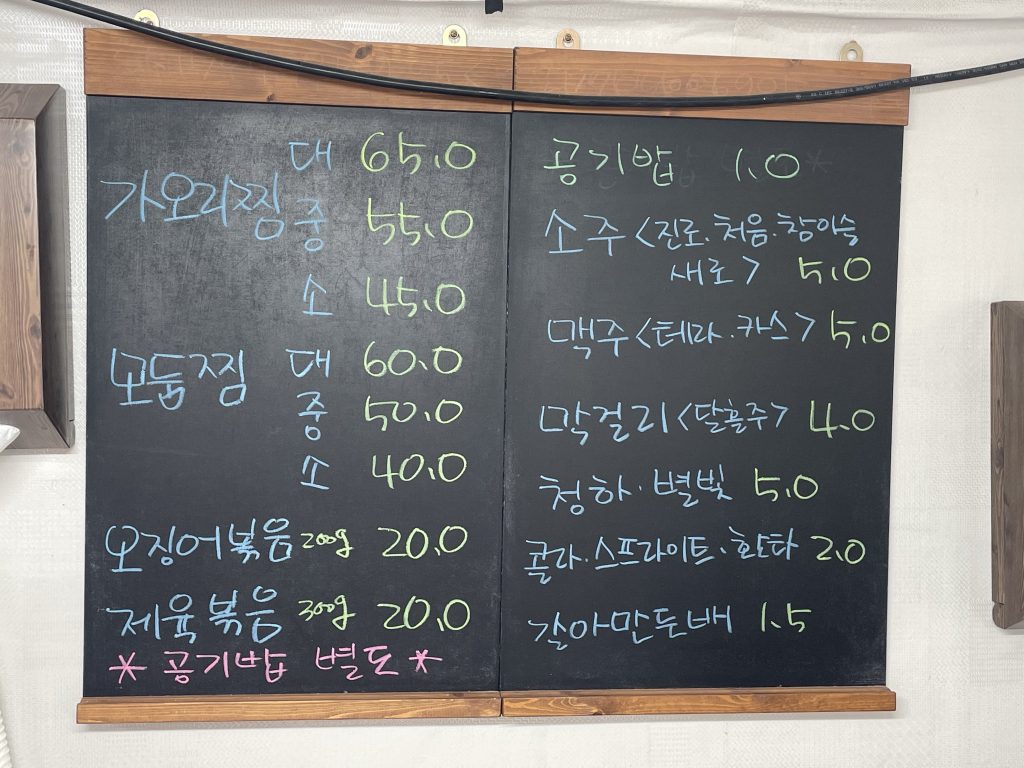 대 65.0
가오리찜 중 55.0
소 45.0
모듬찜 대 60.0
중 50.0
소 40.0
오징어볶음 200g 20.0
제육볶음 300g 20.0
* 공기밥 별도 *
공기밥 1.0
소주 <진로.처음.참이슬
새로> 5.0
맥주 <테라.카스> 5.0
막걸리 <달홀주> 4.0
청하.별빛 5.0
콜라.스프라이트.환타 2.0
갈아만든배 1.5